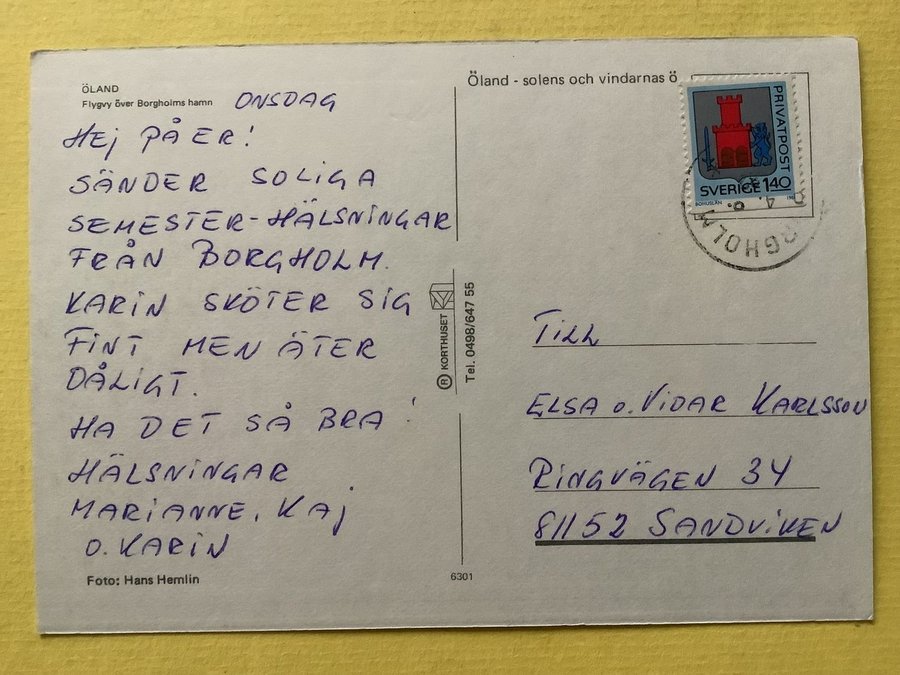 ÖLAND
Flygvy över Borgholms hamn
ONSDAG
HEJ PÅ ER!
SÄNDER SOLIGA
SEMESTER-HÄLSNINGAR
FRÅN BORGHOLM.
KARIN SKÖTER SIG
FINT MEN ÄTER
DÅLIGT.
HA DET SÅ BRA!
HÄLSNINGAR
MARIANNE, KAJ
O. KARIN
Foto: Hans Hemlin
® KORTHUSET
Tel. 0498/647 55
6301
Öland - solens och vindarnas ö
PRIVATPOST
SVERIGE 140
BOHUSLÄN
RGHOLM
TILL
ELSA O. VIDAR KARLSSON
RINGVÄGEN 34
81152 SANDVIKEN